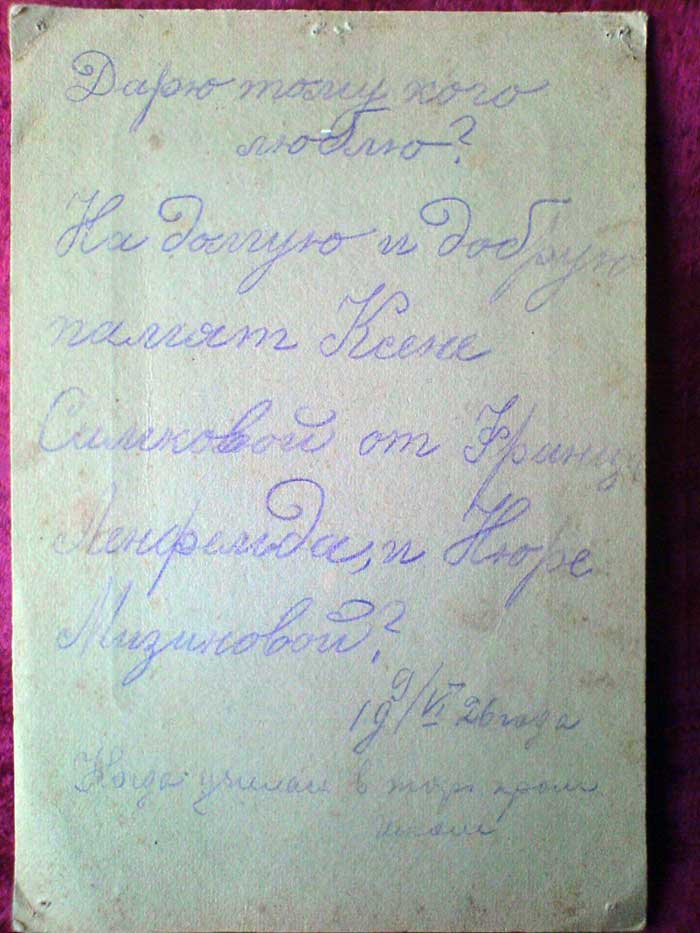 Дарю тому кого
люблю?
На долгую и добрую
памят Ксене
Симковой от Франца
Ленфельда, и Нюре
Мизиновой?
9/VI 1926 года
Когда училас в торг пром
школе